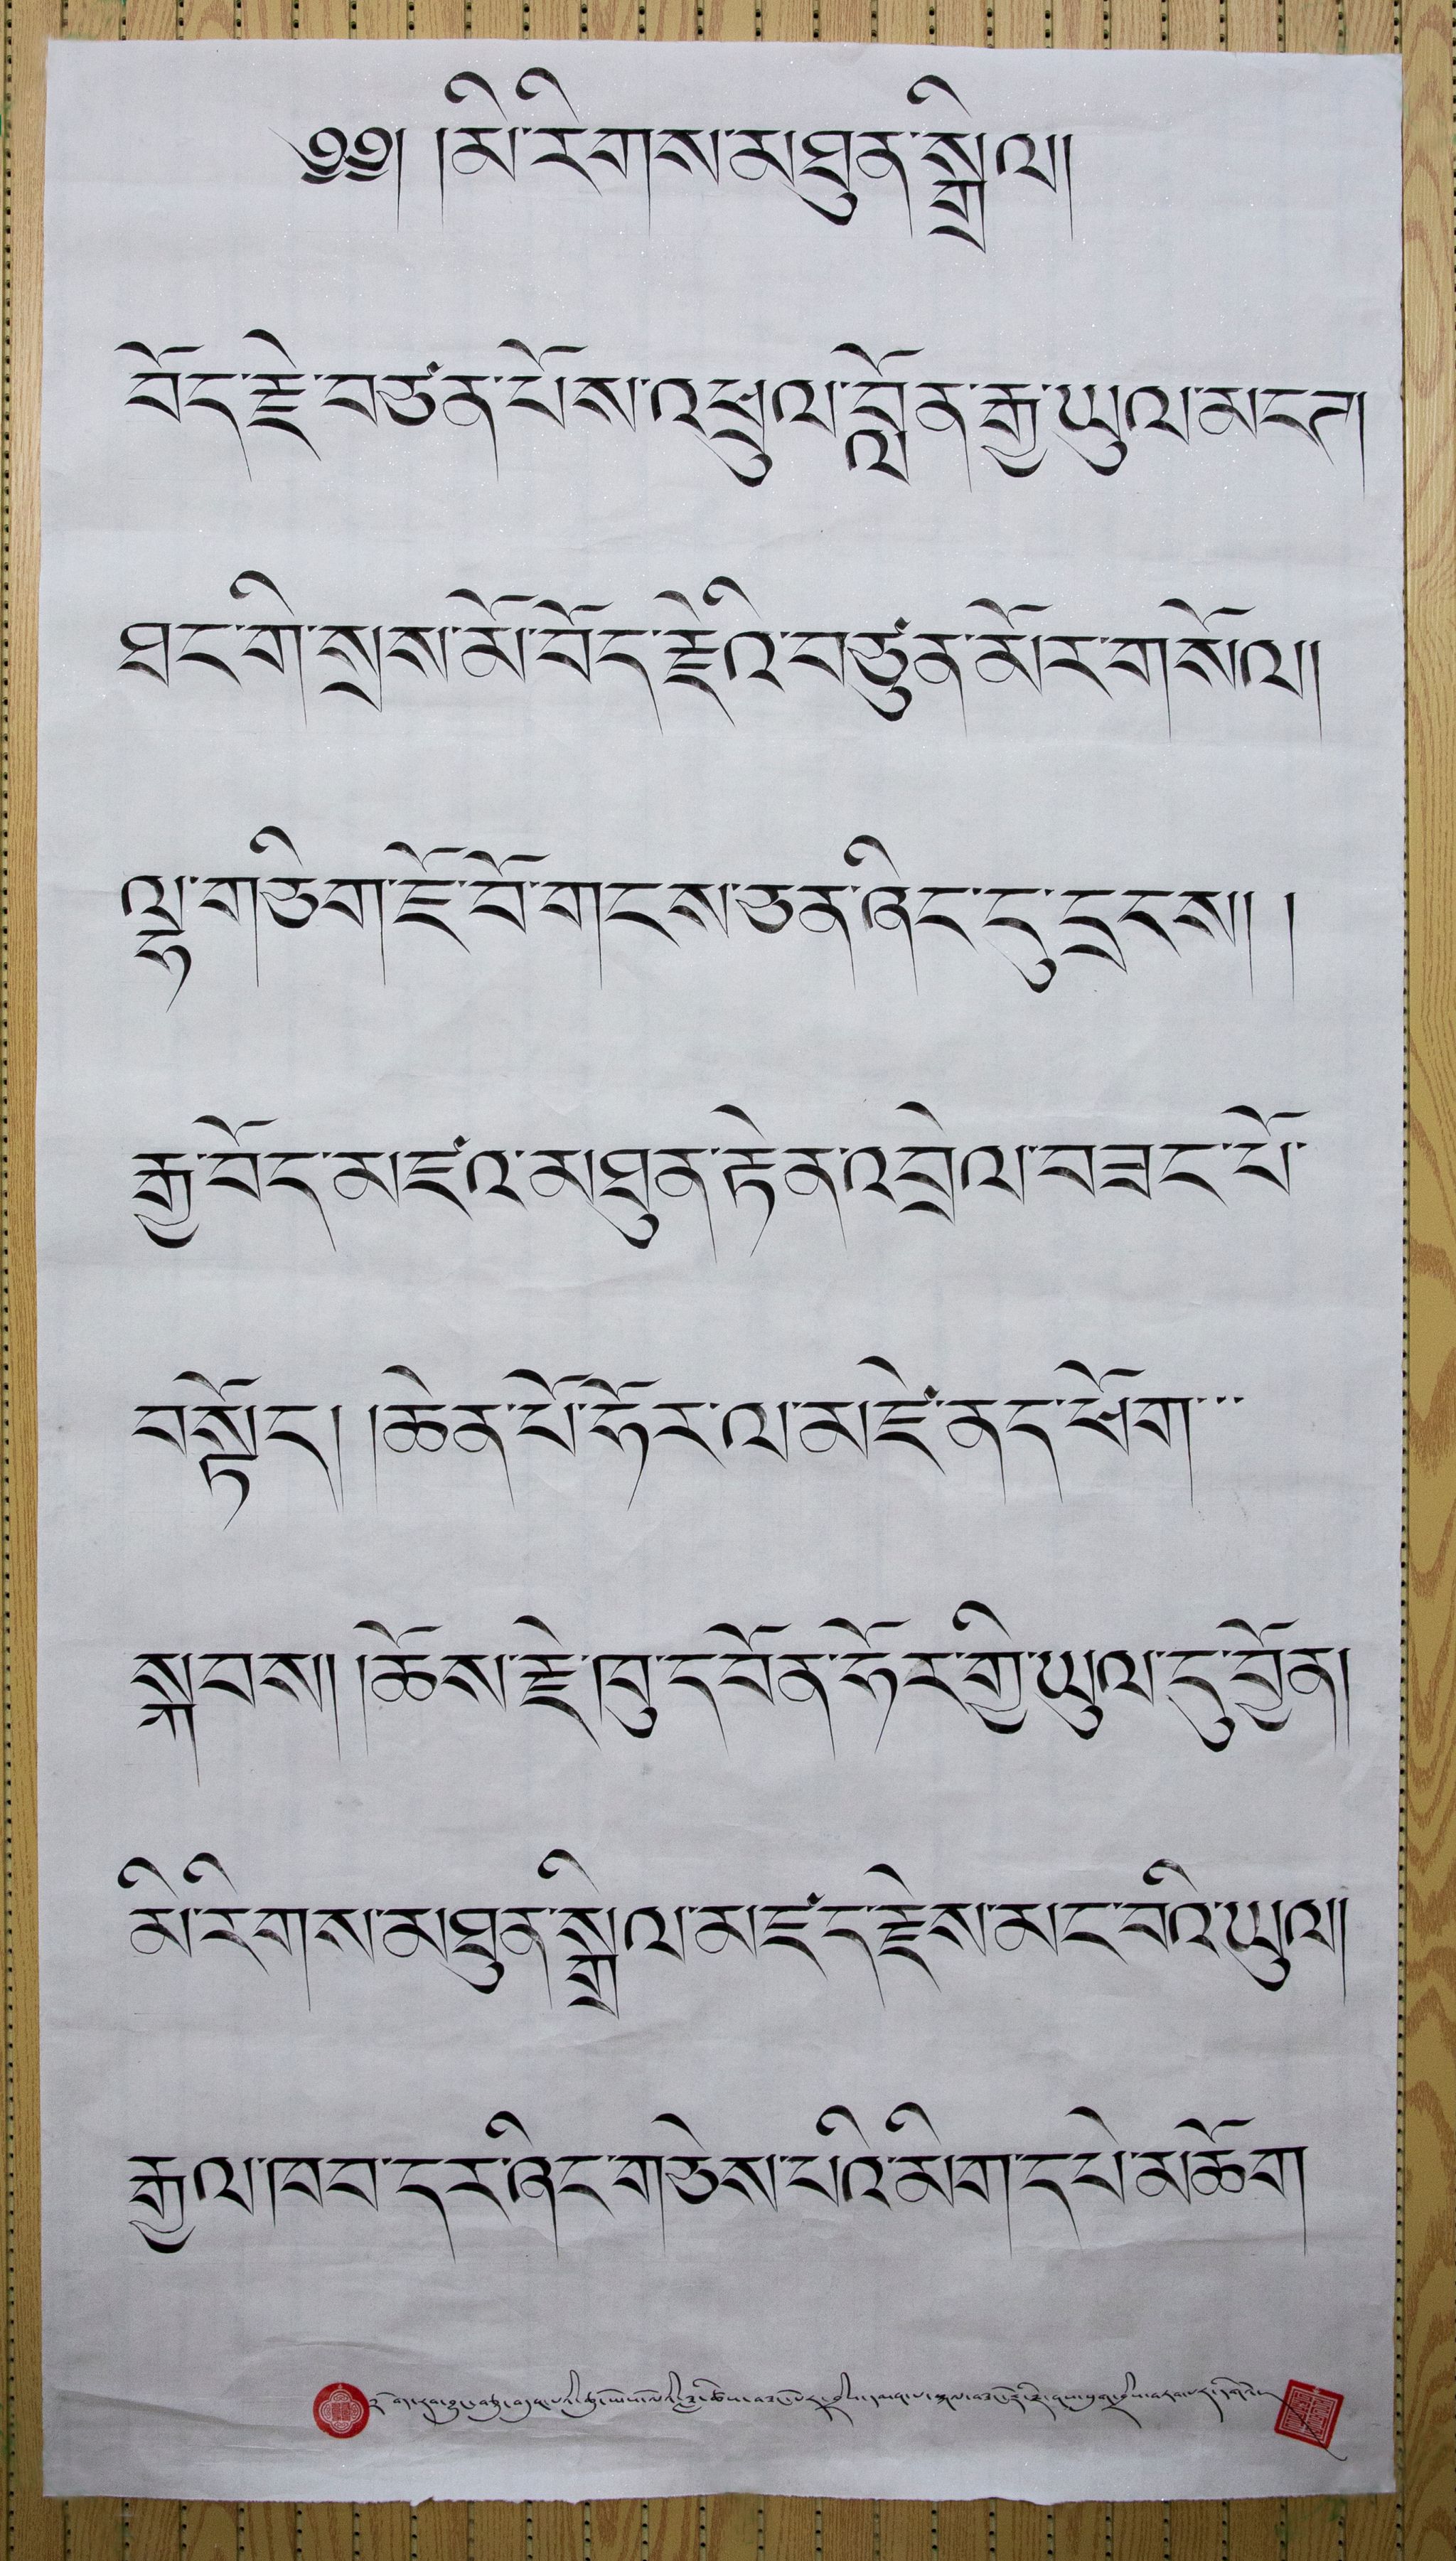 ༄༅། །མི་རིགས་མཐུན་སྒྲིལ།།
བོད་རྗེ་བཙན་པོས་འཕྲུལ་བློན་རྒྱ་ཡུལ་མངག།
ཐང་གི་སྲས་མོ་བོད་རྗེའི་བཙུན་མོར་གསོལ།།
ལྷ་གཅིག་ཇོ་བོ་གངས་ཅན་ཞིང་དུ་དྲངས།། །
རྒྱ་བོད་མཛའ་མཐུན་རྟེན་འབྲེལ་བཟང་པོ་
བསྟོད། །ཆེན་པོ་ཧོར་ལ་མཛེ་ནད་ཕོག་་་
སྐབས།། །ཆོས་རྗེ་ཁུ་དབོན་ཧོར་གྱི་ཡུལ་དུ་བྱོན།
མི་རིགས་མཐུན་སྒྲིལ་མཛད་རྗེས་མང་བའི་ཡུལ།།
རྒྱལ་ཁབ་དར་ཞིང་གཅེས་པའི་མིག་དཔེ་མཆོག